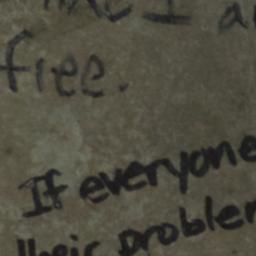 I
free.
If everyone
their problem